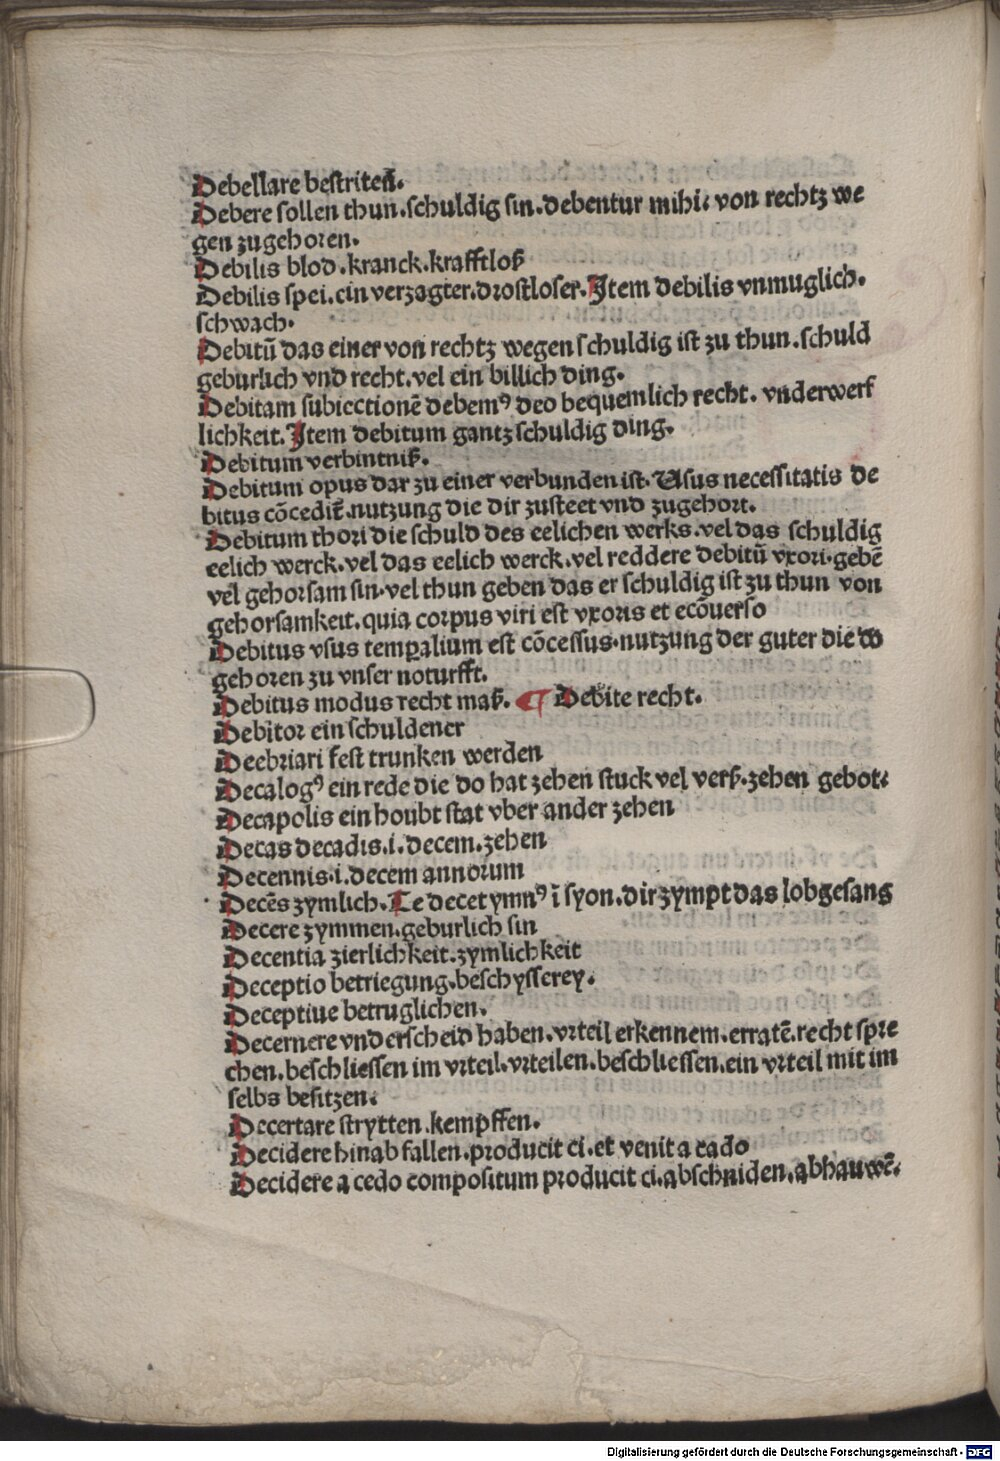 Debellare bestriten̄.
Debere sollen thun.schuldig sin.debentur mihi: von rechtz we
gen zugehoren.
Debilis blod.kranck.krafftloß
Debilis spei.ein verzagter.drostloser.Item debilis vnmuglich.
schwach.
Debitū das einer von rechtz wegen schuldig ist zu thun.schuld
geburlich vnd recht.vel ein billich ding.
Debitam subiectionē debemꝰ deo bequemlich recht. vnderwerf
lichkeit.Item debitum gantz schuldig ding.
Debitum verbintniß.
Debitum opus dar zu einer verbunden ist.Usus necessitatis de
bitus cōcedit̄.nutzung die dir zusteet vnd zugehort.
Debitum thori die schuld des eelichen werks.vel das schuldig
eelich werck.vel das eelich werck.vel reddere debitū vxori.gebē
vel gehorsam sin.vel thun geben das er schuldig ist zu thun von
gehorsamkeit.quia corpus viri est vxoris et ecōuerso
Debitus vsus temꝑalium est cōcessus.nutzung der guter die do
gehoren zu vnser noturfft.
Debitus modus recht maß. ¶ Debite recht.
Debitor ein schuldener
Deebriari fest trunken werden
Decalogꝰ ein rede die do hat zehen stuck vel verß.zehen gebot:
Decapolis ein houbt stat vber ander zehen
Decas decadis.i.decem.zehen
Decennis.i.decem annorum
Decēs zymlich.Te decet ymnꝰ ī syon.dir zympt das lobgesang
Decere zymmen.geburlich sin
Decentia zierlichkeit.zymlichkeit
Deceptio betriegung.beschysserey.
Deceptiue betruglichen.
Decernere vnderscheid haben.vrteil erkennem.erratē.recht spre
chen.beschliessen im vrteil.vrteilen.beschliessen.ein vrteil mit im
selbs besitzen:
Decertare strytten.kempffen.
Decidere hinab fallen.producit ci.et venit a cado
Decidere a cedo compositum producit ci.abschniden.abhauwē.
Digitalisierung gefördert durch die Deutsche Forschungsgemeinschaft - DFG